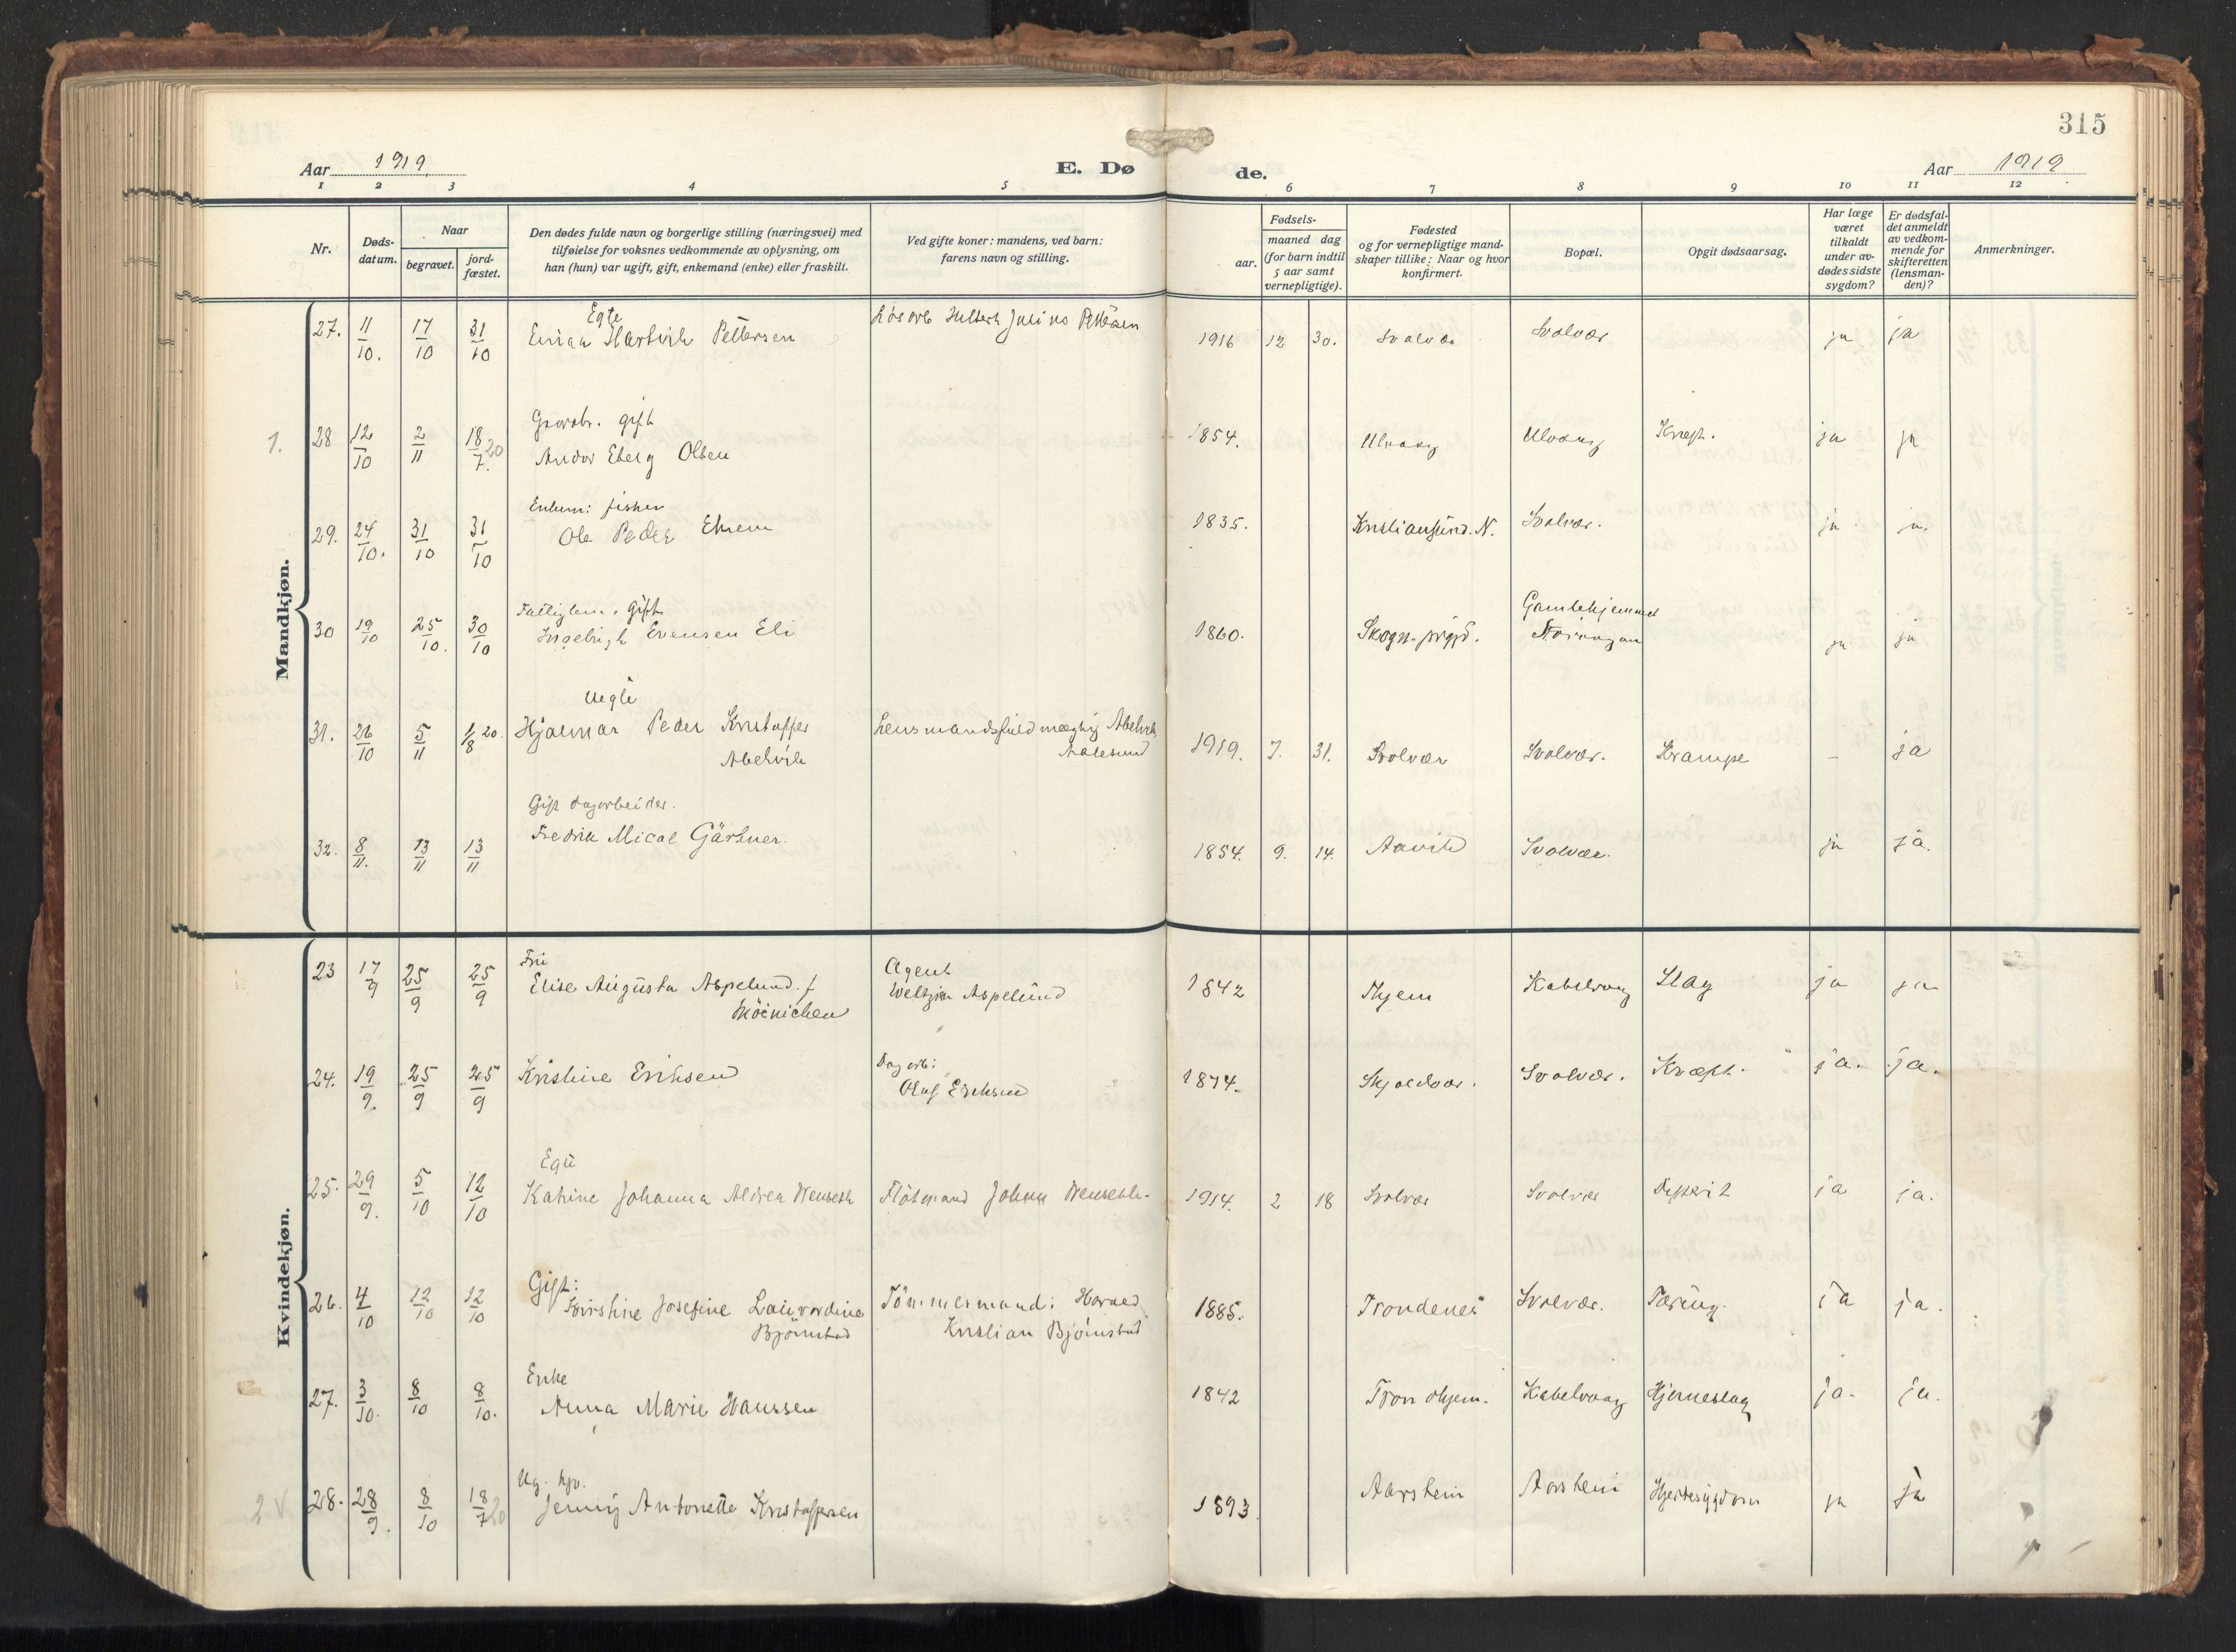 315
Aar 1919. E. Dø de. Aar 1919
1 2 3 4 5 6 7 8 9 10 11 12
Nr.
Døds-
datum.
Naar
begravet.
jord-
fæstet.
Den dødes fulde navn og borgerlige stilling (næringsvei) med
tilføielse for voksnes vedkommende av oplysning, om
han (hun) var ugift, gift, enkemand (enke) eller fraskilt.
Ved gifte koner: mandens, ved barn:
farens navn og stilling.
Fødsels-
aar.
maaned dag
(for barn indtil
5 aar samt
vernepligtige).
Fødested
og for vernepligtige mand-
skaper tillike: Naar og hvor
konfirmert.
Bopæl.
Opgit dødsaarsag.
Har læge
været
tilkaldt
under av-
dødes sidste
sygdom?
Er dødsfal-
det anmeldt
av vedkom-
mende for
skifteretten
(lensman-
den)?
Anmerkninger.
Mandkjøn.
Egte
27. 11/10. 17/10 31/10 Einar Hartvik Pettersen Julius Pettersen 1916 12 30. Svolvær Svolvær ja ja
Gaardbr. gift
1. 28 12/10 2/11 18/7 20 Andor Eberg Olsen 1854. Ulvaag Ulvaag Kræft. ja ja
Enkem: fisker
29. 24/10. 31/10 31/10 Ole Peder 1835. Kristiansund. N. Svolvær. ja ja.
Fattiglem. gift Gamlehjemmet
30 19/10 25/10. 30/10 Ingebrigt Evensen Eli 1860. Skogn ja ja
Uegte
31. 26/10 5/11 1/8 20. Hjalmar Peder Kristoffer Lensmandsfuldmægtig Abelvik
Abelvik Aalesund 1919. 7. 31. Svolvær Svolvær. Krampe – ja
Gift dagarbeider.
32. 8/11. 13/11 13/11 Fredrik Mical Gärtner. 1854. 9. 14. Svolvær. ja ja.
Kvindekjøn.
Fru Agent
23 17/9 25/9 25/9 Elise Augusta Aspelund. f Weltzin Aspelund 1842 Thjem Kabelvaag Slag ja ja
Möinichen
Dagarb:
24. 19/9. 25/9 25/9 Kristine Eriksen Olaf Eriksen 1874. Skjoldvær. Svolvær. Kræft. ja. ja.
Egte
25. 29/9. 5/10 12/10 Katrine Johanna Aldrea Wenseth Flötmand Johan Wenseth. 1914. 2 18 Svolvær Svolvær ja ja.
Gift:
26. 4/10 12/10 12/10 Kristine Josefine Laurardine Tömmermand: Harved
Björnstad Kristian Björnstad 1885. Trondenes Svolvær. Tæring. ja ja.
Enke
27. 3/10. 8/10 8/10. Anna Marie Hanssen 1842 Trondhjem. Kabelvaag Hjerneslag ja. ja.
Ug.
2 V 28. 28/9. 8/10 18/7 20 Jenny Antonette Kristoffersen 1893 Aarstein Aarstein Hjertesygdom ja ja